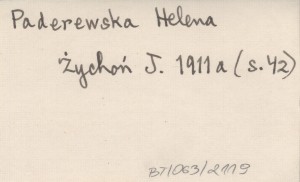 Paderewska Helena
Żychoń J. 1911a (s.42)
BT/063/2119